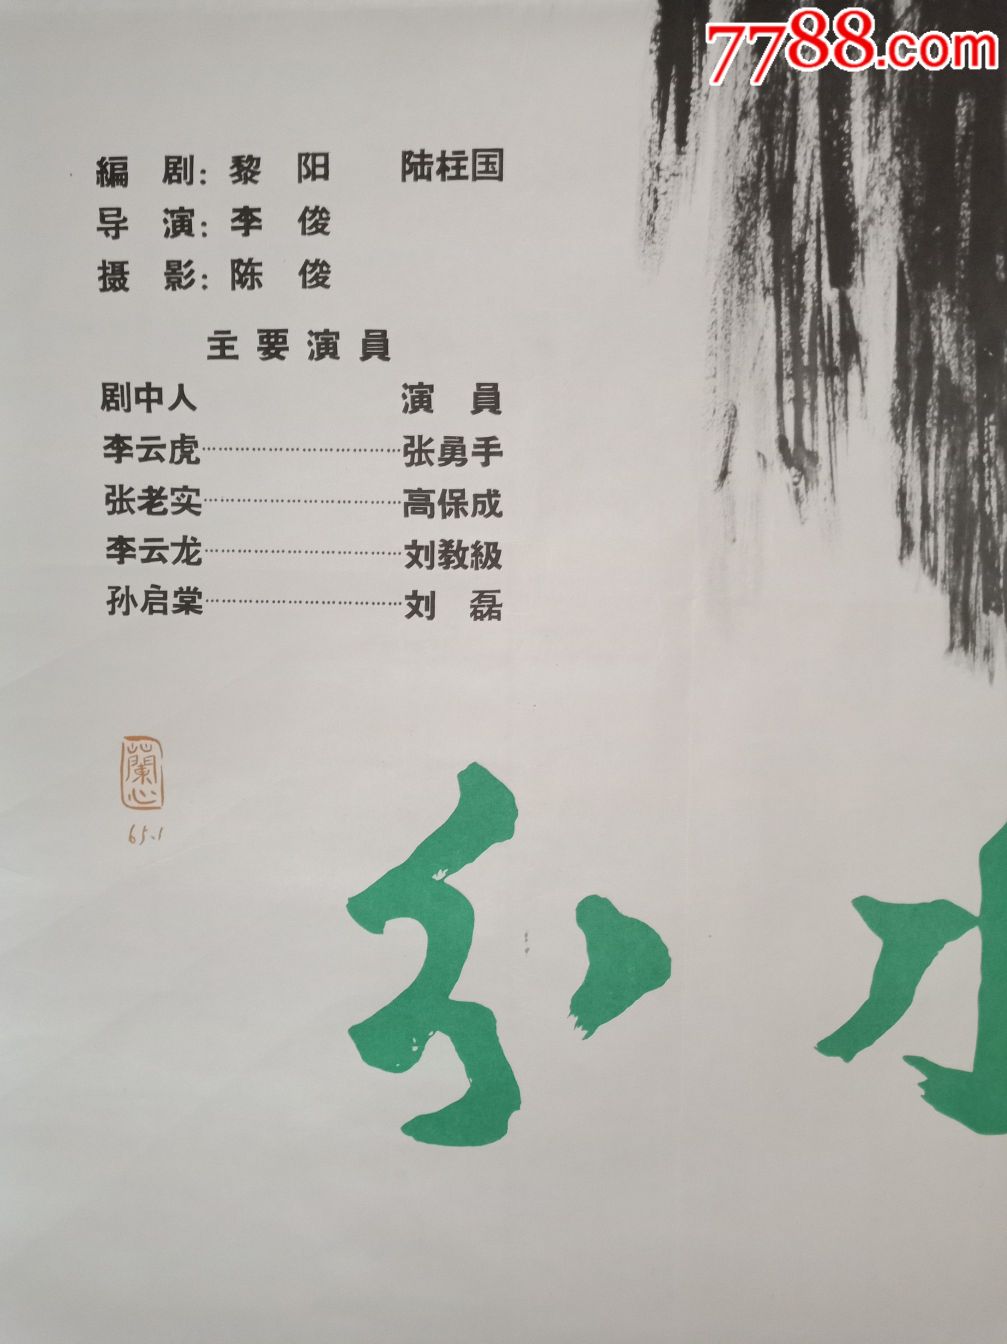 7788.com
編 剧：黎 阳 陆柱国
导 演：李 俊
摄 影：陈 俊
主要演員
剧中人 演 員
李云虎……………………………张勇手
张老实……………………………高保成
李云龙……………………………刘教級
孙启棠……………………………刘 磊
蘭心
65.1